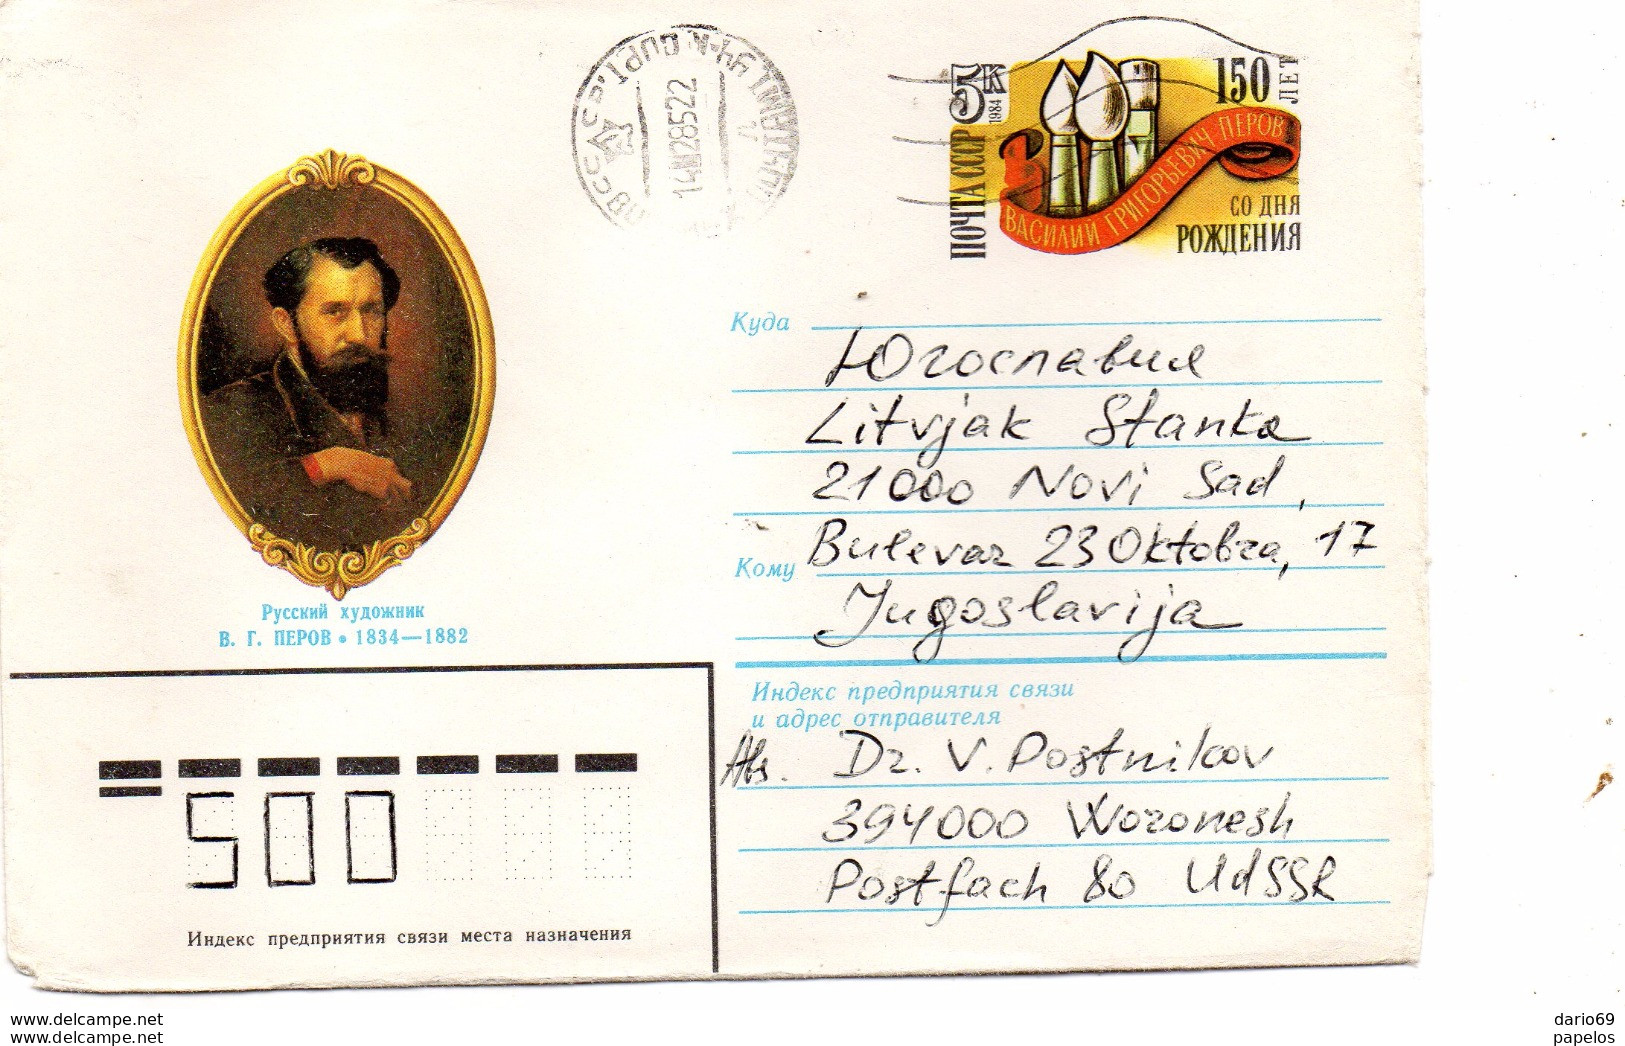 5К
1984
ПОЧТА СССР
150
ЛЕТ
ВАСИЛИЙ ГРИГОРЬЕВИЧ ПЕРОВ
СО ДНЯ
РОЖДЕНИЯ
Русский художник
В. Г. ПЕРОВ • 1834—1882
Куда
Югославия
Litvjak Stanka
21000 Novi Sad,
Bulevar 23 Oktobra, 17
Кому
Jugoslavija
Индекс предприятия связи
и адрес отправителя
Abs. Dr. V. Postnikov
394000 Woronesh
Postfach 80 UdSSR
500
Индекс предприятия связи места назначения
www.delcampe.net
www.delcampe.net
dario69
papelos